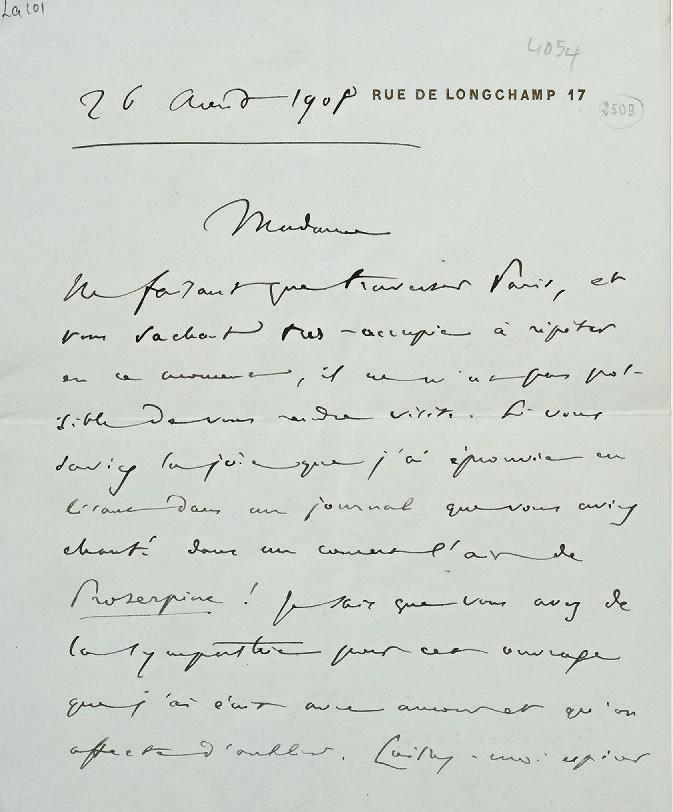 La 101
4054
26 Avril 1908 RUE DE LONGCHAMP 17
2509
Madame
Ne faisant que traverser Paris, et
vous sachant très occupée à répéter
en ce moment, il ne m'est pas pos-
sible de vous rendre visite. Si vous
saviez la joie que j'ai éprouvée en
lisant dans un journal que vous aviez
chanté dans un concert l'air de
Proserpine ! Je sais que vous avez de
la sympathie pour cet ouvrage
que j'ai écrit avec amour et qu'on
affecte d'oublier. Laissez-moi espérer